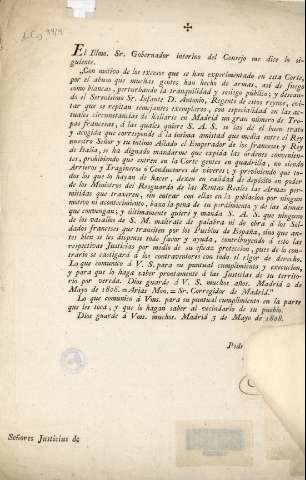 El Illmo. Sr. Gobernador interino del Consejo me dice lo siguiente.
„Con motivo de los excesos que se han experimentado en esta Corte,
por el abuso que muchas gentes han hecho de armas, asi de fuego
como blancas, perturbando la tranquilidad y sosiego público; y deseando
el Serenísimo Sr. Infante D. Antonio, Regente de estos reynos, evitar
que se repitan semejantes exemplares, con especialidad en las actuales
circunstancias de hallarse en Madrid un gran número de Tropas
francesas, á las quales quiere S. A. S. se les dé el buen trato
y acogida que corresponde á la íntima amistad que media entre el Rey
nuestro Señor y su íntimo Aliado el Emperador de los franceses y Rey
de Italia, se ha dignado mandarme que expida las órdenes convenientes,
prohibiendo que entren en la Corte gentes en quadrilla, no siendo
Arrieros y Tragineros ó Conductores de víveres; y prohibiendo que todos
los que lo hayan de hacer, dexen en calidad de depósito en poder
de los Ministros del Resguardo de las Rentas Reales las Armas permitidas
que traxeren, sin entrar con ellas en la poblacion por ningun
motivo ni acontecimiento, baxo la pena de su perdimiento y de las demas
que convengan; y últimamente quiere y manda S. A. S. que ninguno
de los vasallos de S. M. maltrate de palabra ni de obra á los Soldados
franceses que transiten por los Pueblos de España, sino que antes
bien se les dispense todo favor y ayuda, contribuyendo á esto las
respectivas Justicias por medio de su oficio proteccion, pues de lo contrario
se castigará á los contraventores con todo el rigor de derecho.
Lo que comunico á V. S. para su puntual cumplimiento y execucion,
y para que lo haga saber prontamente á las Justicias de su territorio
por vereda. Dios guarde á V. S. muchos años. Madrid 2 de
Mayo de 1808. = Arias Mon. = Sr. Corregidor de Madrid."
Lo que comunico á Vms. para su puntual cumplimiento en la parte
que les toca, y que lo hagan saber al vecindario de su pueblo.
Dios guarde á Vms. muchos. Madrid 3 de Mayo de 1808.
Señores Justicias de